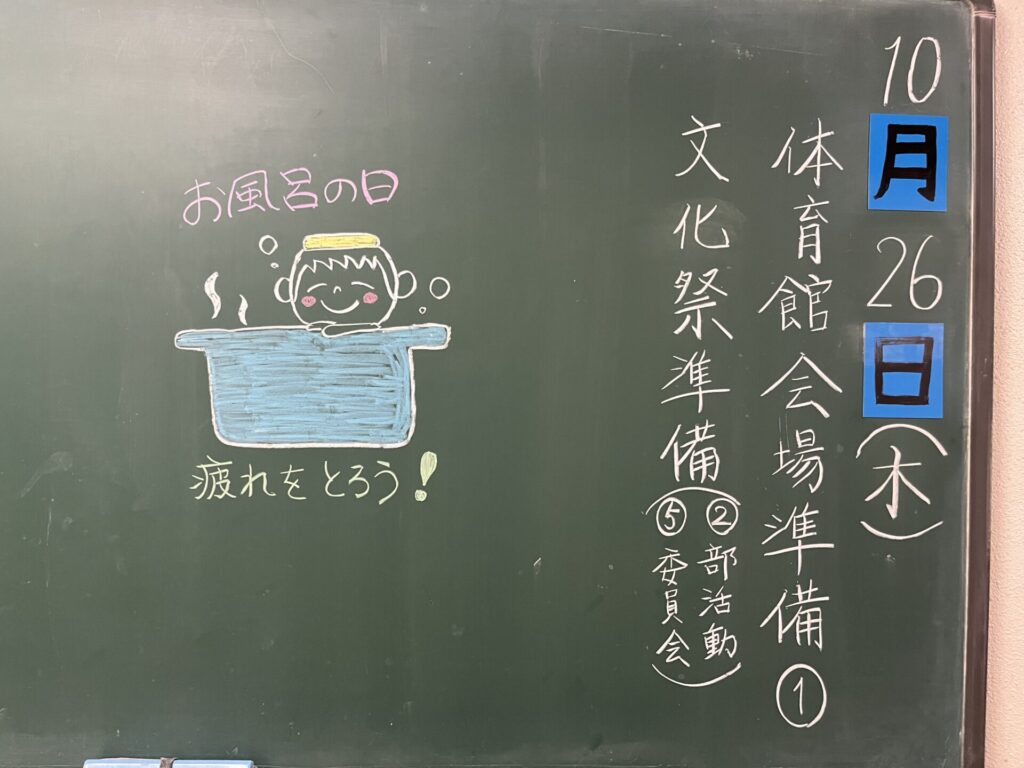 10月26日(木)
体育館会場準備①
文化祭準備(②部活動
⑤委員会)
お風呂の日
疲れをとろう!